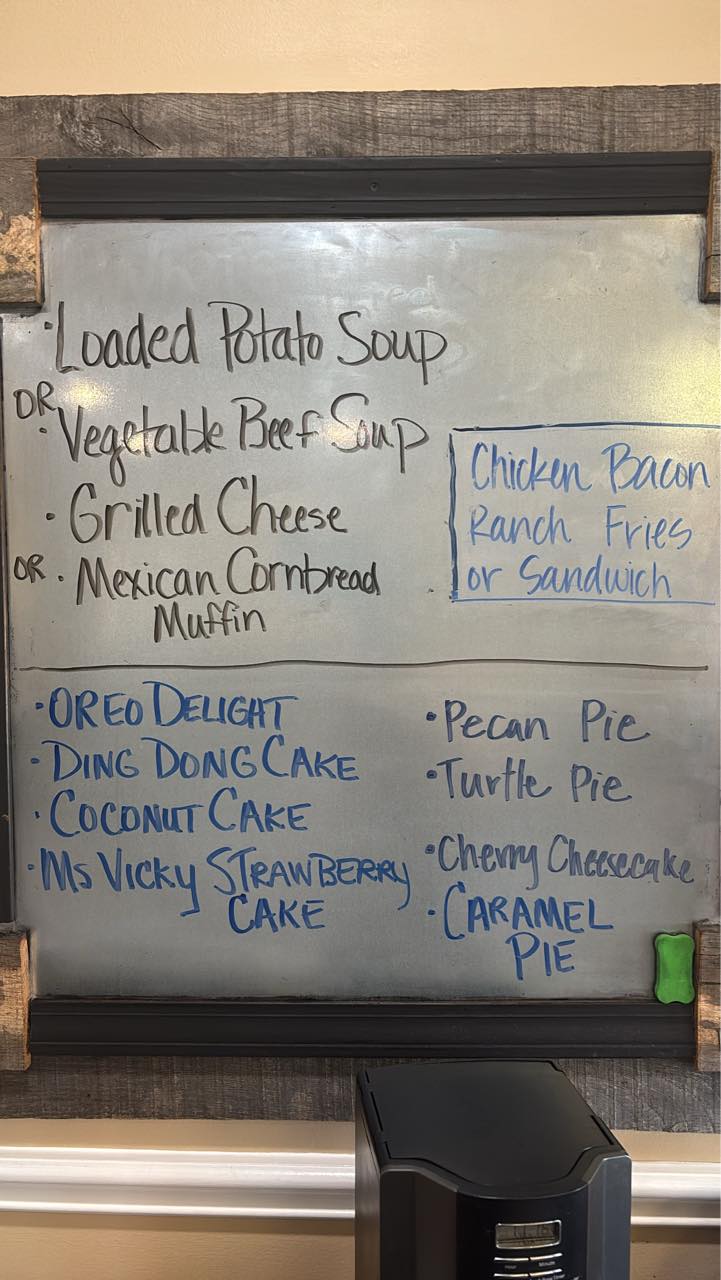 ·Loaded Potato Soup
OR
·Vegetable Beef Soup
·Grilled Cheese
OR ·Mexican Cornbread
Muffin
Chicken Bacon
Ranch Fries
or Sandwich
·OREO DELIGHT
·DING DONG CAKE
·COCONUT CAKE
·Ms VICKY STRAWBERRY
CAKE
·Pecan Pie
·Turtle Pie
·Cherry Cheesecake
·CARAMEL
PIE
Hour Minute